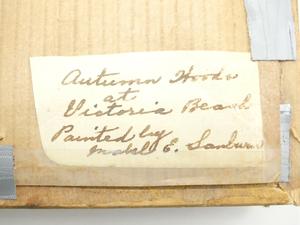 Autumn Woods
at
Victoria Beach
Painted by
Mabel E. Sanburn